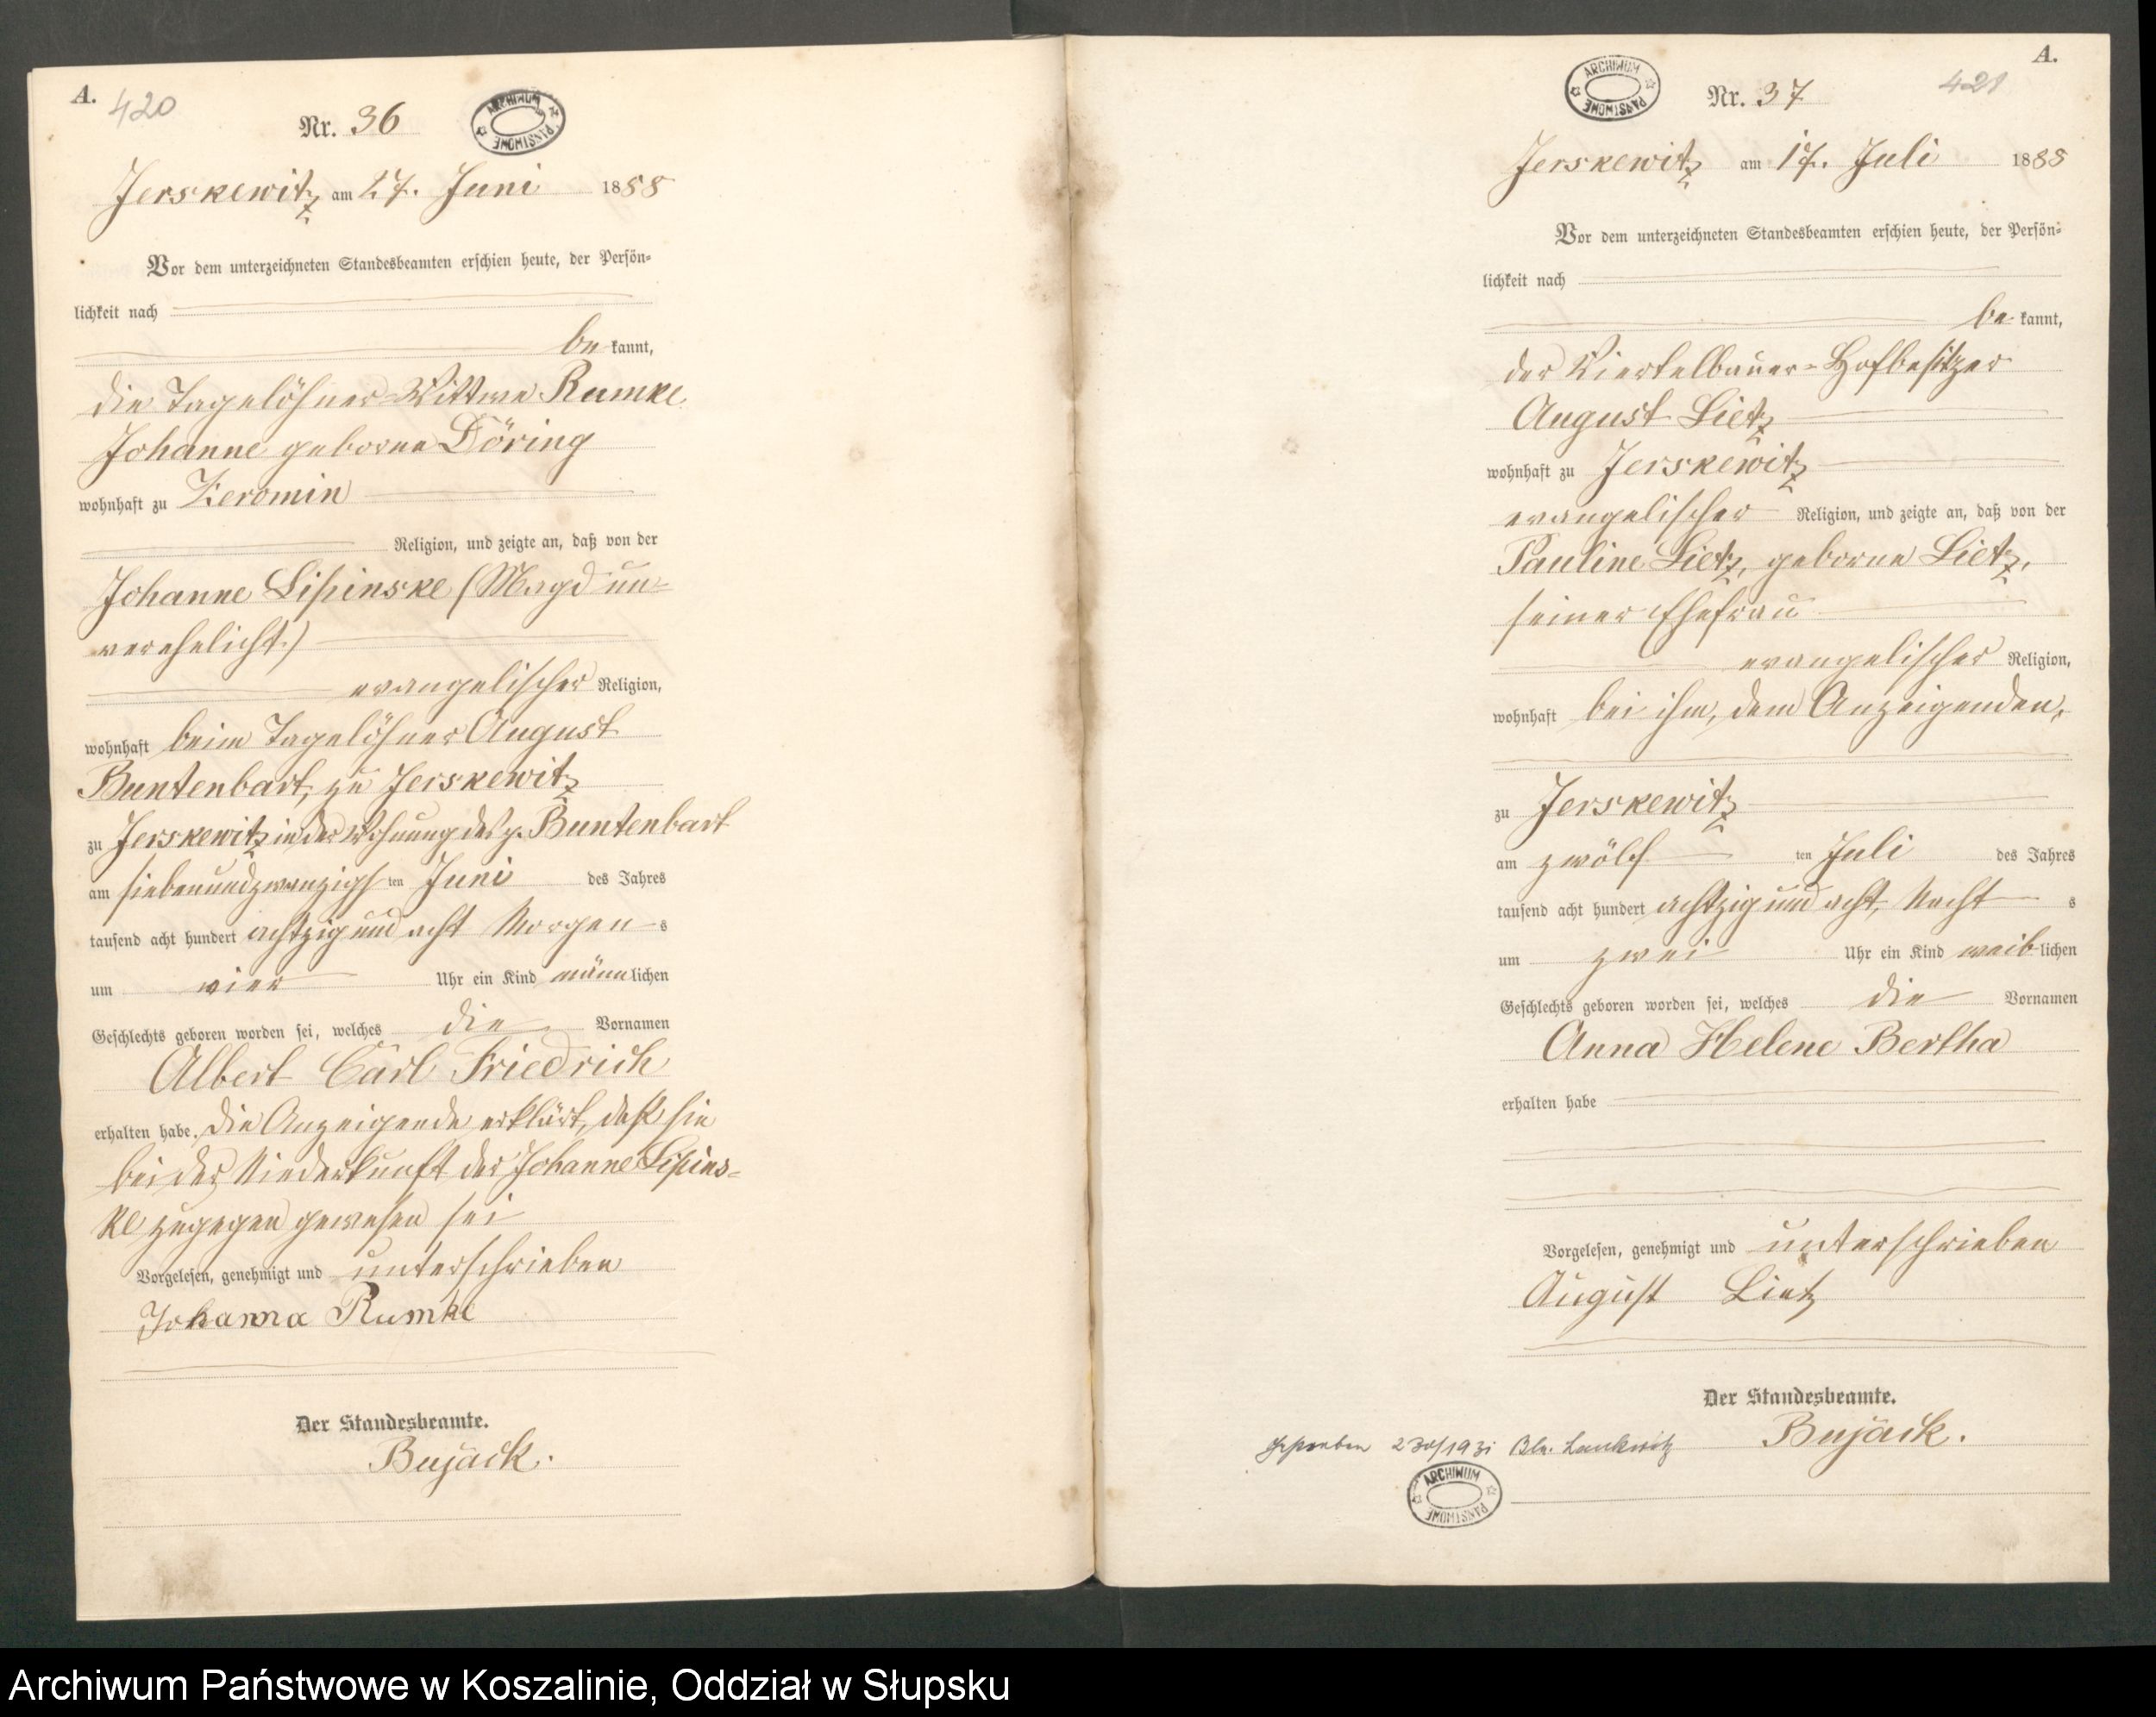 A.
420
Nr. 36
ARCHIWUM PAŃSTWOWE
Jerskewitz am 27. Juni 1888
Vor dem unterzeichneten Standesbeamten erschien heute, der Persön-
lichkeit nach
be kannt,
die Tagelöhner-Wittwe Rumke
Johanne geborne Döring
wohnhaft zu Zeromin
Religion, und zeigte an, daß von der
Johanne Lipinske (Magd un-
verehelicht)
evangelischer Religion,
wohnhaft beim Tagelöhner August
Buntenbart, zu Jerskewitz
zu Jerskewitz in der Wohnung des p. Buntenbart
am siebenundzwanzigsten Juni des Jahres
tausend acht hundert achtzig und acht Morgens
um vier Uhr ein Kind männlichen
Geschlechts geboren worden sei, welches die Vornamen
Albert Carl Friedrich
erhalten habe. Die Anzeigende erklärt, daß sie
bei der Niederkunft der Johanne Lipins-
ke zugegen gewesen sei
Vorgelesen, genehmigt und unterschrieben
Johanna Rumke
Der Standesbeamte.
Bujack.
A.
421
Nr. 37
ARCHIWUM PAŃSTWOWE
Jerskewitz am 17. Juli 1888
Vor dem unterzeichneten Standesbeamten erschien heute, der Persön-
lichkeit nach
be kannt,
der Viertelbauer-Hofbesitzer
August Lietz
wohnhaft zu Jerskewitz
evangelischer Religion, und zeigte an, daß von der
Pauline Lietz, geborne Lietz,
seiner Ehefrau
evangelischer Religion,
wohnhaft bei ihm, dem Anzeigenden,
zu Jerskewitz
am zwölften Juli des Jahres
tausend acht hundert achtzig und acht, Nachts
um zwei Uhr ein Kind weiblichen
Geschlechts geboren worden sei, welches die Vornamen
Anna Helene Bertha
erhalten habe
Vorgelesen, genehmigt und unterschrieben
August Lietz
Der Standesbeamte.
Bujack.
Bln. Lankwitz
ARCHIWUM PAŃSTWOWE
Archiwum Państwowe w Koszalinie, Oddział w Słupsku